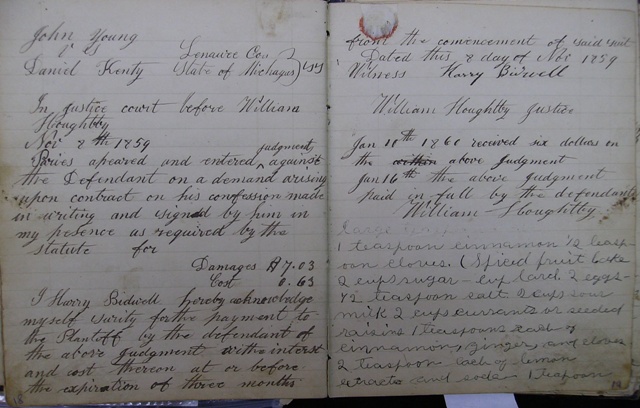 John Young
vs
Daniel Henty
Lenawee Cou
State of Michagus } SS
In Justice court before William
Houghtby
Nov 8th 1859
Paries apeared and entered judgment against
the Defendant on a demand arising
upon contract on his confession made
in writing and signed by him in
my presence as required by the
statute for
Damages $7.03
Cost 0.63
I Harry Bidwell hereby acknowledge
myself surity for the payment to
the Plantoff by the defendant of
the above Judgment with interest
and cost thereon at or before
the expiration of three months
from the comencement of said suit
Dated this 8 day of Nov 1859
Witness Harry Bidwell
William Houghtby Justice
Jan 11th 1860 received six dollars on
the above Judgment
Jan 16th the above judgment
paid in full by the defendant
William Houghtby
large
1 teaspoon cinnamon 1/2 teasp-
oon cloves. (Spiced fruit cake
2 cups sugar - cup lard 2 eggs-
1/2 teaspoon salt 2 cups sour
milk 2 cups currants or seeded
raisins 1 teaspoons each of
cinnamon, ginger, and cloves
2 teaspoon each of lemon
extracts and soda 1 teaspoon